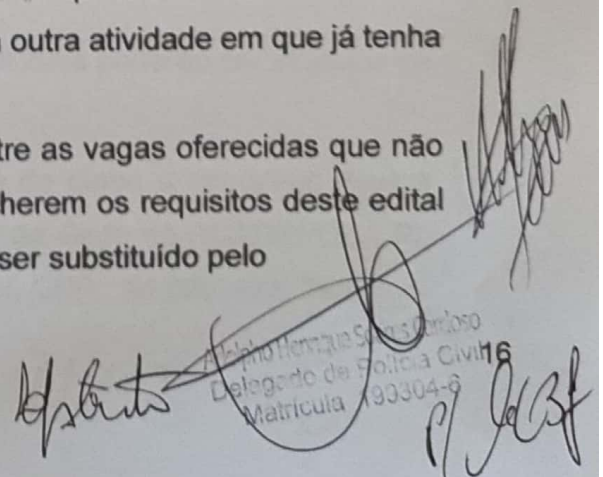 outra atividade em que já tenha
tre as vagas oferecidas que não
herem os requisitos deste edital
ser substituído pelo
Henrique
Delegado de Polícia Civil
16
Matrícula 199304-6
p/